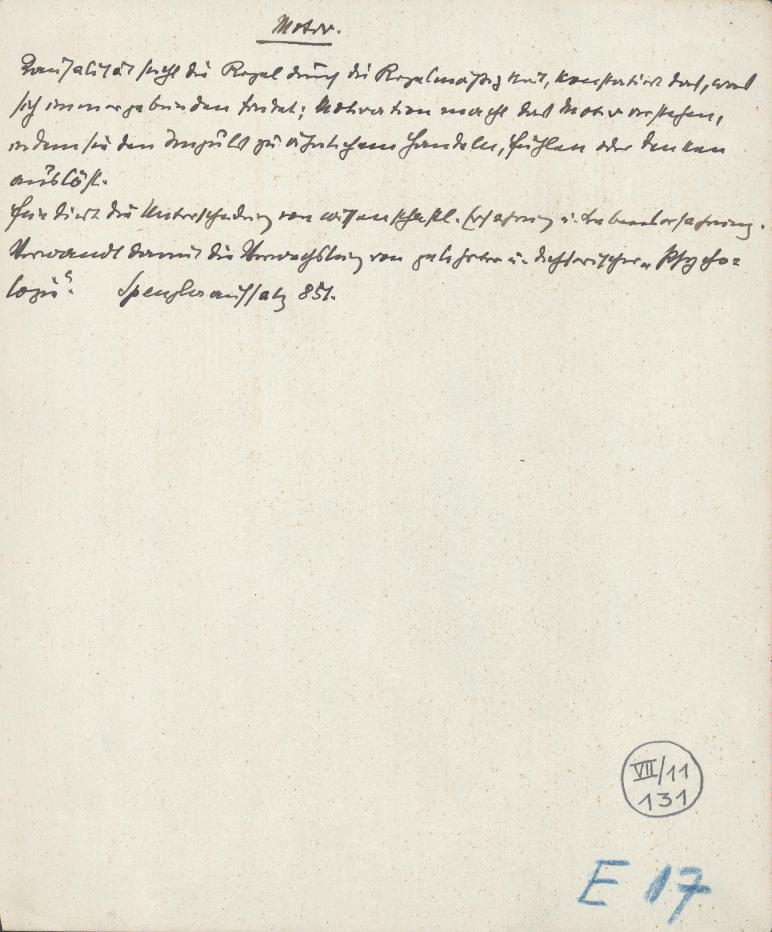 Motiv.
Kausalität sucht die Regel durch die Regelmäßigkeit, konstatiert das, was
sich immer gebunden findet; Motivation macht das Motiv verstehen,
indem sie den Impuls zu ähnlichem Handeln, Fühlen oder Denken
auslöst.
Fundiert die Unterscheidung von wissenschaftl. Erfahrung u. Lebenserfahrung.
Verwandt damit die Verwechslung von gelehrter u. dichterischer „Psycho=
logie“. Spengleraufsatz 851.
VII/11
131
E 17